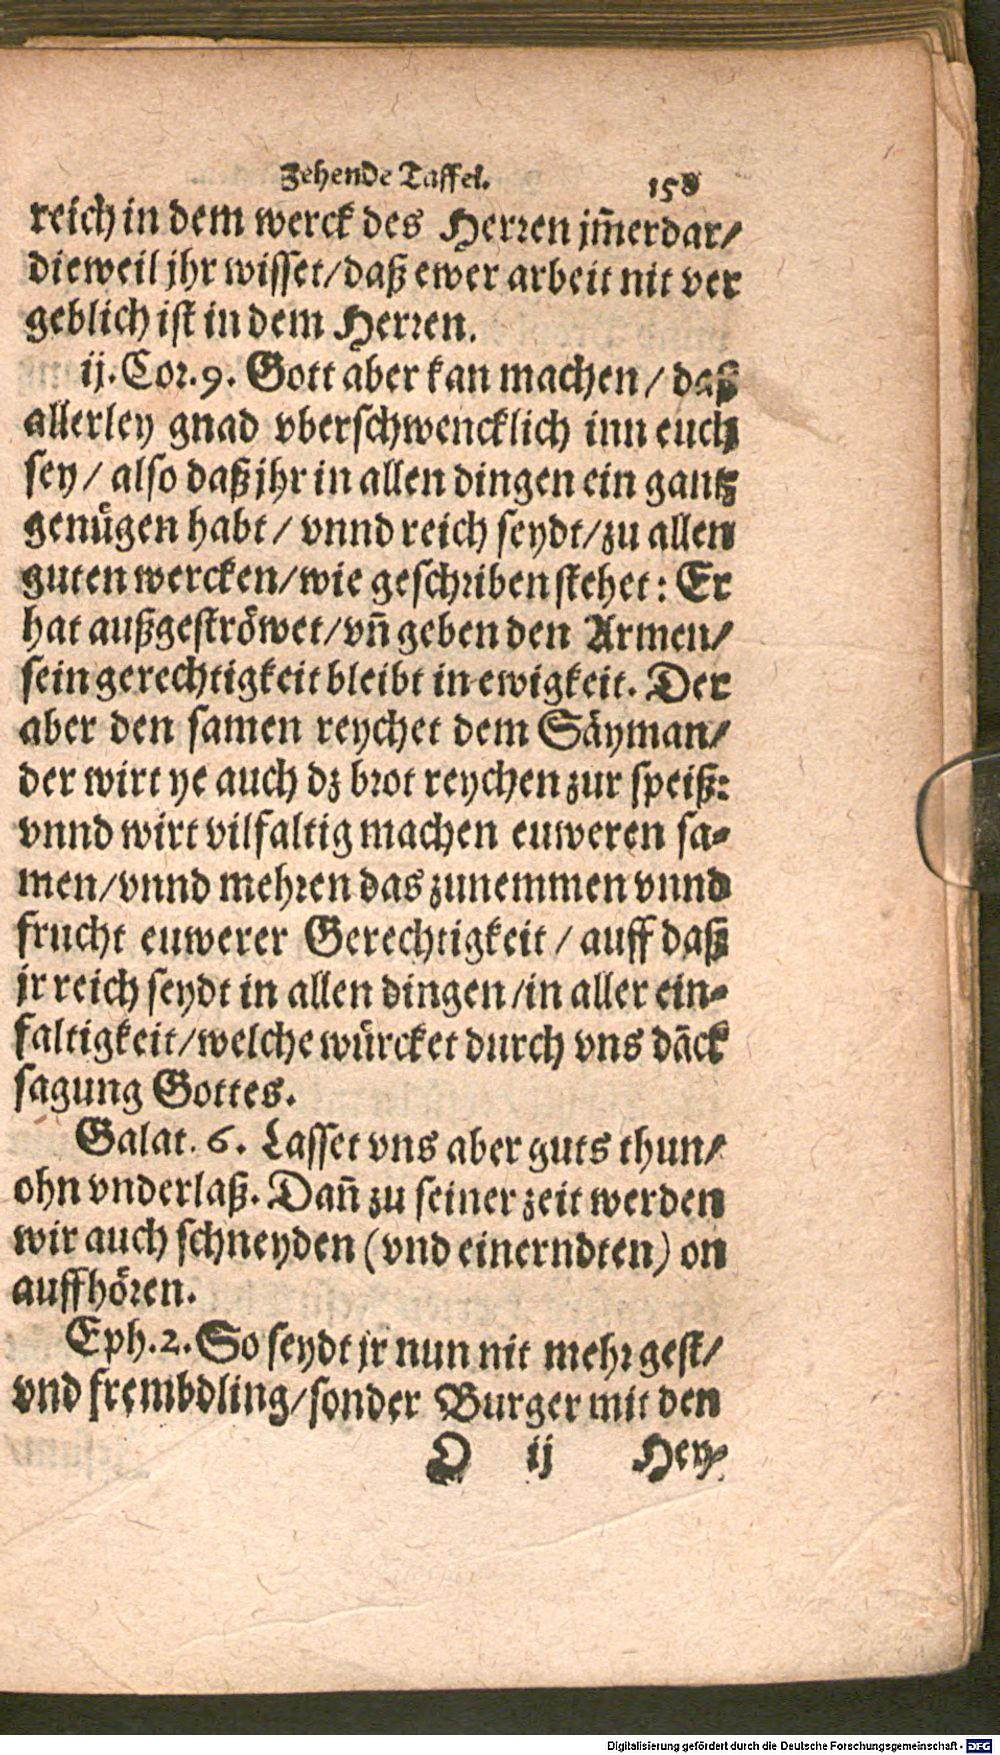 Zehende Taffel. 158
reich in dem werck des Herren jm̃erdar/
dieweil jhr wisset/daß ewer arbeit nit ver
geblich ist in dem Herren.
ij. Cor. 9. Gott aber kan machen / daß
allerley gnad vberschwencklich inn euch
sey / also daß jhr in allen dingen ein gantz
genügen habt / vnnd reich seydt/zu allen
guten wercken/wie geschriben stehet: Er
hat außgeströwet/vñ geben den Armen/
sein gerechtigkeit bleibt in ewigkeit. Der
aber den samen reychet dem Säyman/
der wirt ye auch dz brot reychen zur speiß:
vnnd wirt vilfaltig machen euweren sa⸗
men/vnnd mehren das zunemmen vnnd
frucht euwerer Gerechtigkeit / auff daß
jr reich seydt in allen dingen/in aller ein⸗
faltigkeit/welche würcket durch vns dāck
sagung Gottes.
Galat. 6. Lasset vns aber guts thun/
ohn vnderlaß. Dañ zu seiner zeit werden
wir auch schneyden (vnd einerndten) on
auffhören.
Eph. 2. So seydt jr nun nit mehr gest/
vnd frembdling/sonder Burger mit den
O ij Hey⸗
Digitalisierung gefördert durch die Deutsche Forschungsgemeinschaft - DFG